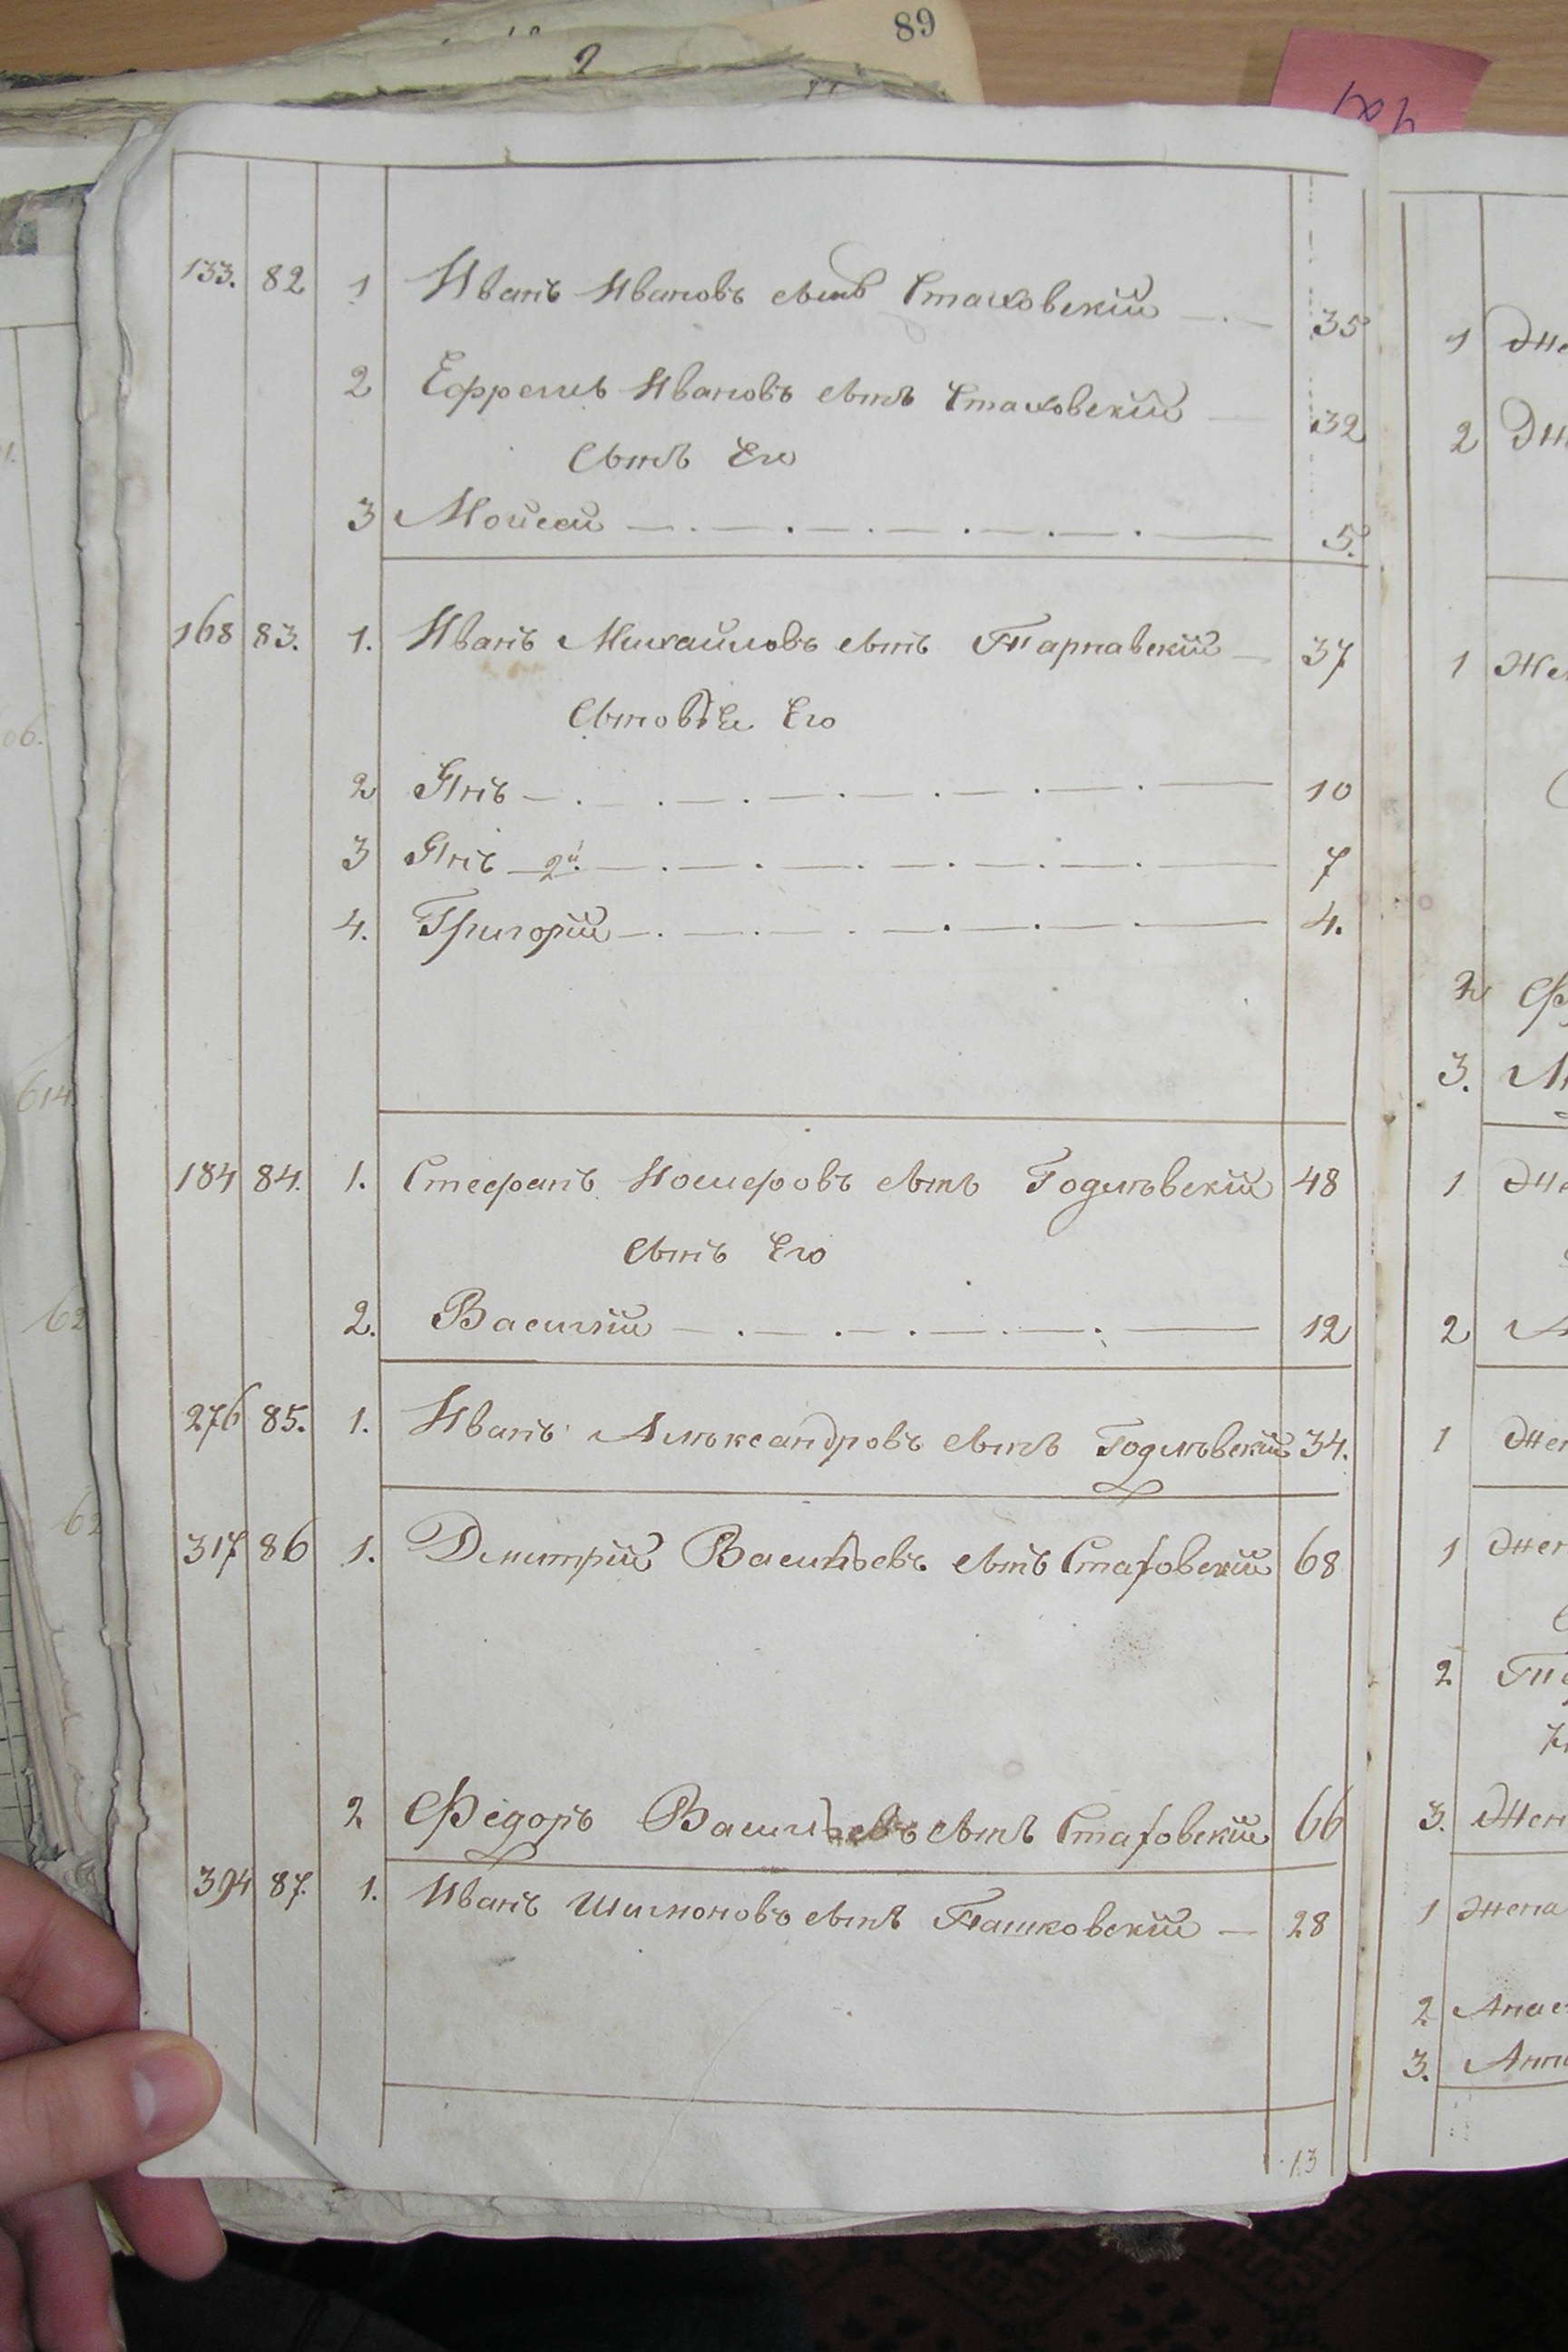 89
2
133. 82 1 Иванъ Ивановъ сынъ Стаховскій 35
2 Ефремъ Ивановъ сынъ Стаховскій 32
Сынъ Его
3 Мойсей 5.
168 83. 1. Иванъ Михайловъ сынъ Тарнавскій 37
Сыновье Его
2 Янъ 10
3 Янъ 2й 7
4. Григорій 4.
184 84. 1. Стефанъ Іосифовъ сынъ Годлѣвскій 48
сынъ Его
2. Василій 12
276 85. 1. Иванъ Алѣксандровъ сынъ Годлѣвскій 34.
317 86 1. Дмитрій Васильевъ сынъ Стаховскій 68
2 Федоръ Васильевъ сынъ Стаховскій 66
394 87. 1. Иванъ Шимоновъ сынъ Пашковскій 28
13
1
2
1
2
3.
1
2
1
1
2
3. Жен
1 Жена
2
3.